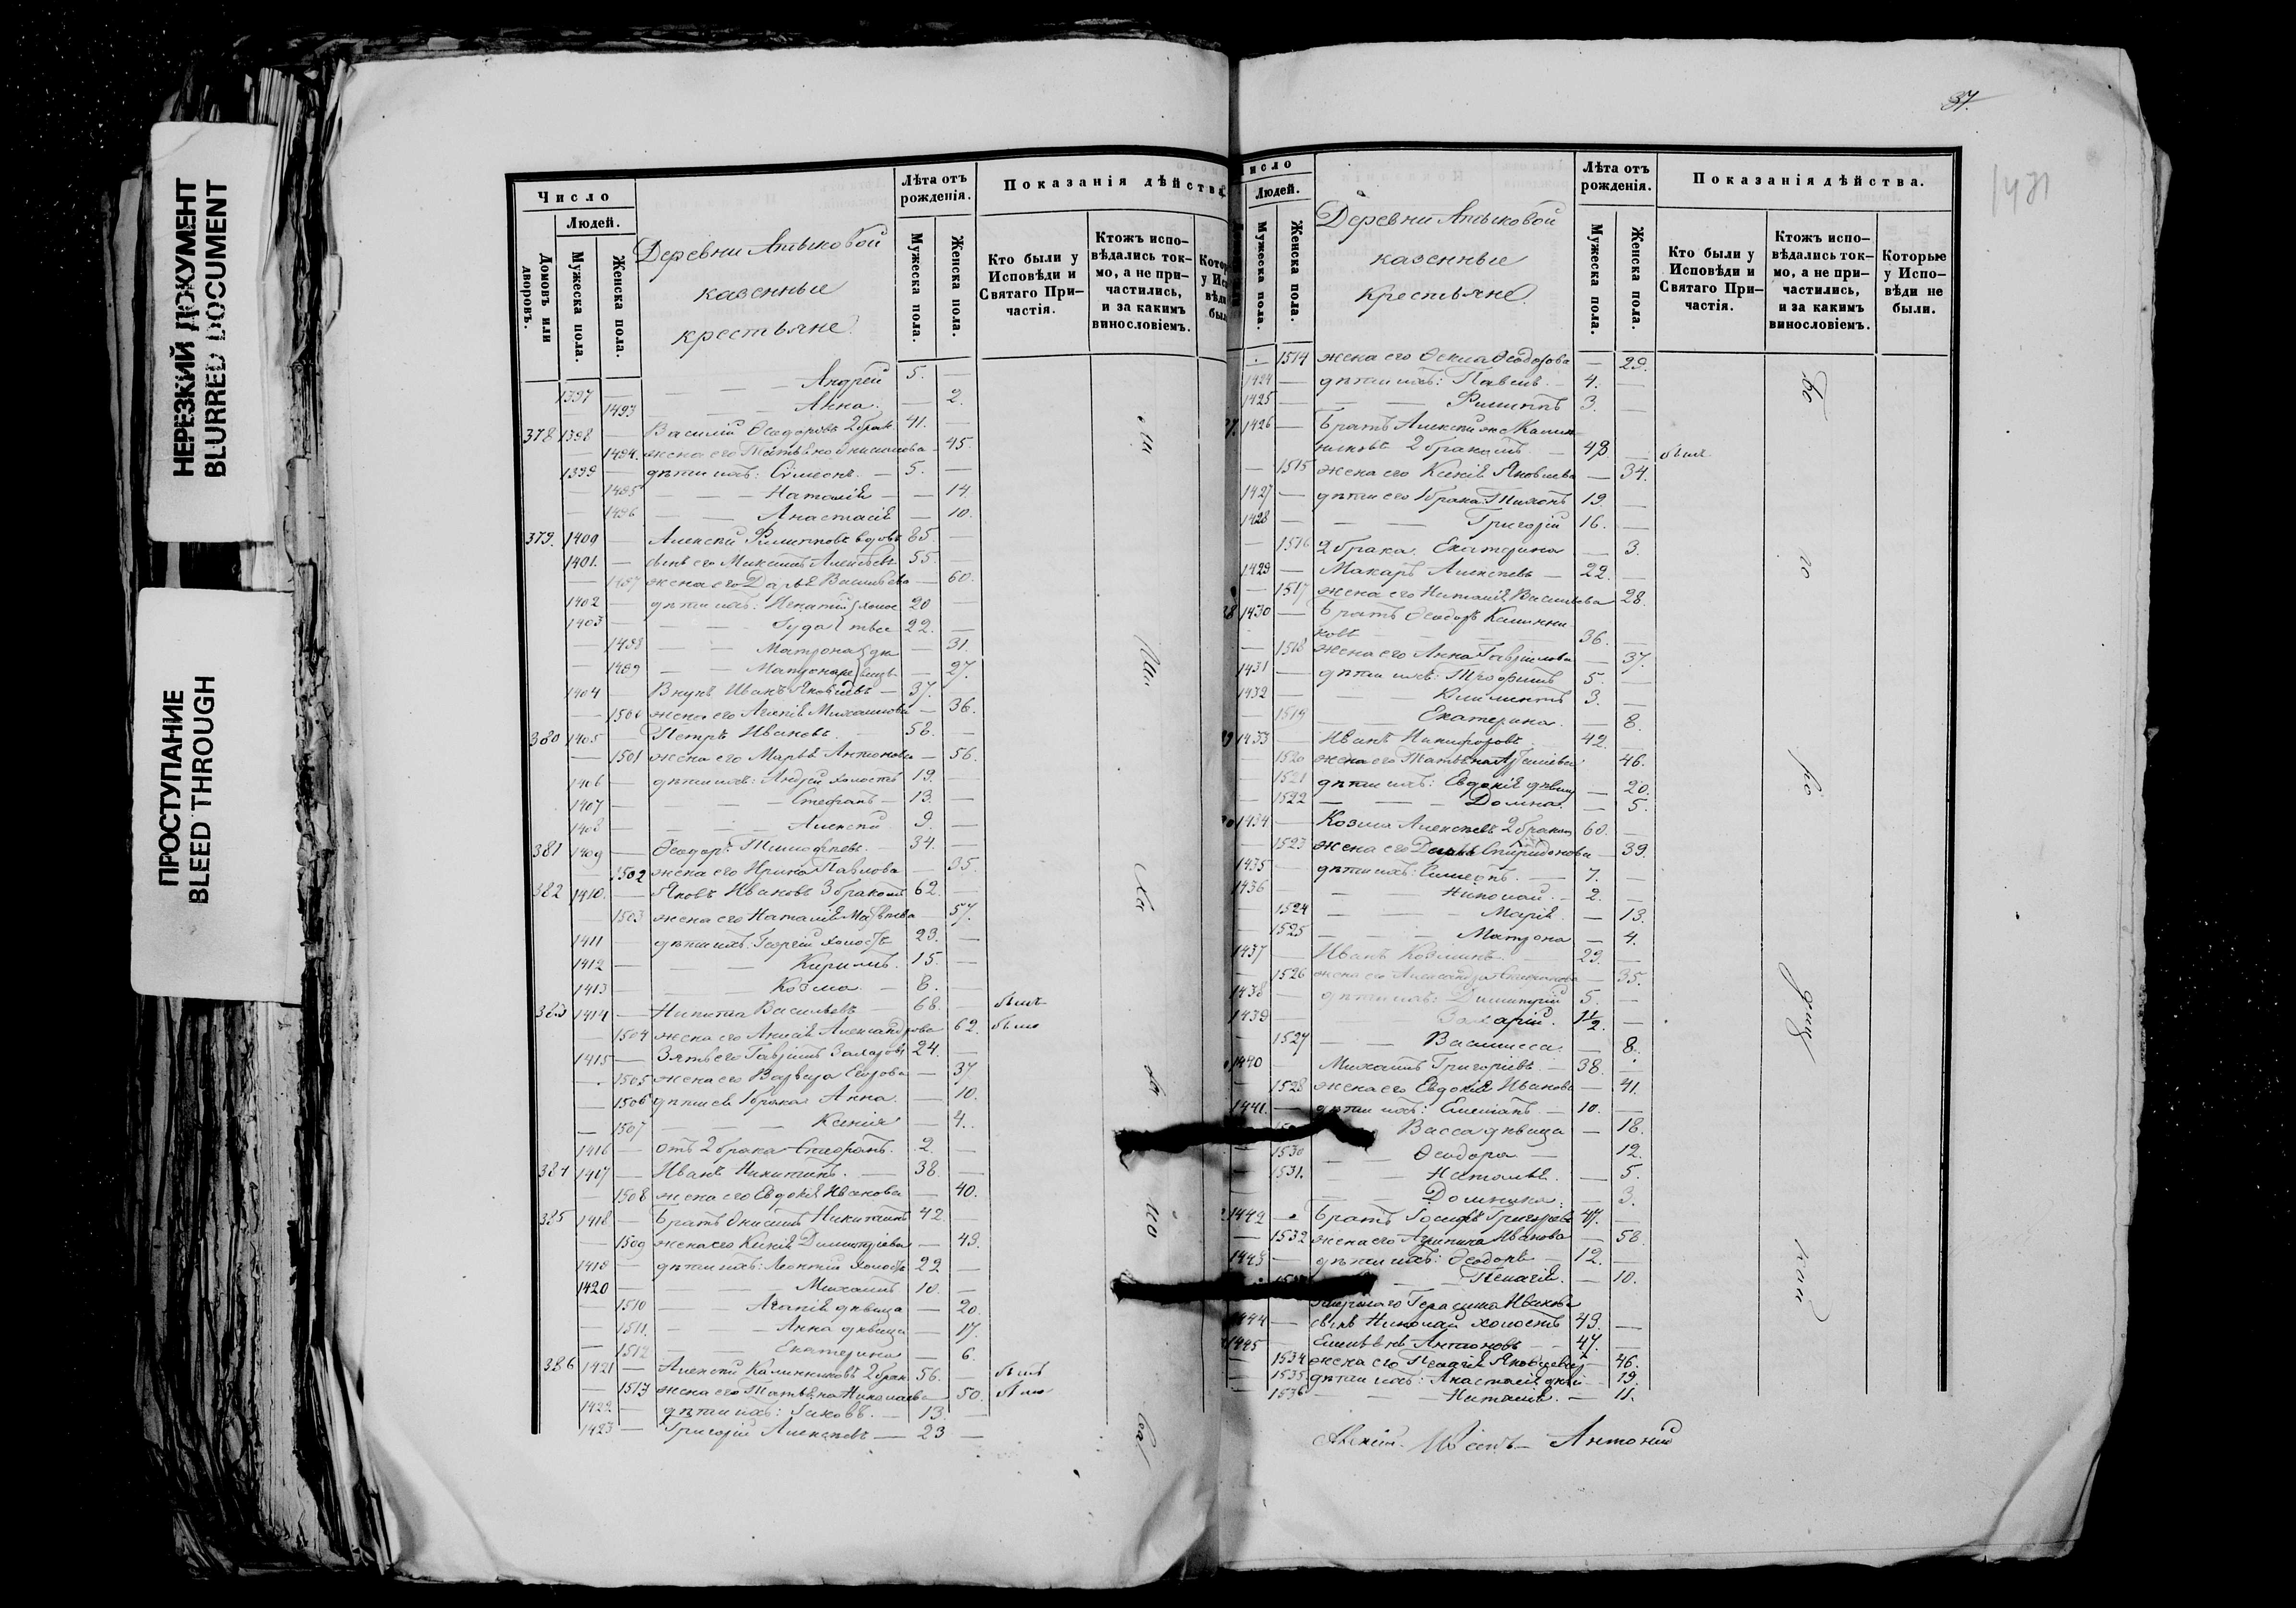 НЕРЕЗКИЙ ДОКУМЕНТ
BLURRED DOCUMENT
ПРОСТУПАНИЕ
BLEED THROUGH
Число
Людей.
Домовъ или дворовъ.
Мужеска пола.
Женска пола.
Деревни Атыковой
казенные
крестьяне.
Лѣта отъ рожденія.
Мужеска пола.
Женска пола.
Показанія дѣйства
Кто были у Исповѣди и Святаго Причастія.
Ктожъ исповѣдались токмо, а не причастились, и за какимъ винословіемъ.
1397 — — — Андрей 5. —
— 1493 — — Анна. — 2.
378 1398 — Василій Ѳеодоровъ 2 брак. 41. —
— 1494. жена его Татьяна — 45.
1399 — дѣти ихъ: Симеонъ. — 5. —
— 1495 — — Наталія — — 14.
— 1496 — — Анастасія — 10.
379. 1400 — Алексій Филипповъ вдовъ 85. —
1401. — сынъ его Михаилъ Алексѣевъ 55. —
— 1497 жена его Дарья Васильева — 60.
1402 — дѣти ихъ: Игнатій холос 20 —
1403 — — — Іуда тые 22. —
— 1498 — — Матрона дѣ — 31.
— 1499 — — Матрона вицы — 27.
1404 — Внукъ Иванъ Яковлевъ — 37. —
— 1500 жена его Агапія Михаилова — 36.
380 1405 — Петръ Ивановъ. 58. —
— 1501 жена его Марья Антонова — 56.
1406 — дѣти ихъ: Андрей холостъ 19. —
1407 — — — Стефанъ — 13. —
1408 — — — Алексій 9. —
381 1409 — Ѳеодоръ Тимофеевъ. 34. —
1502 жена его Ирина Павлова — 35.
382 1410. — Яковъ Ивановъ 3 бракомъ 62. —
— 1503 жена его Наталія Матвѣева — 57.
1411 — дѣти ихъ: Георгій холостъ 23. —
1412 — — — Кирилъ. 15. —
1413 — — — Козма. — 8. —
383 1414 — Никита Васильевъ — 68. — былъ
— 1504 жена его Анисія Александрова 62. была
1415 — Зять его Гавріилъ Захаровъ 24. —
— 1505 жена его Варвара Егорова — 37
— 1506 дѣти ея 1 брака: Анна. — 10.
— 1507 — — Ксенія — 4.
1416 — отъ 2 брака 2. —
384 1417 — Иванъ Никитинъ. — 38. —
— 1508 жена его Евдокія Иванова — 40.
385 1418 — Братъ Онисимъ Никитинъ 42. —
— 1509 жена его Ксенія Димитріева — 43.
1419 — дѣти ихъ: Леонтій холостъ 22 —
1420 — — — Михаилъ 10. —
— 1510 — Агапія дѣвица — 20.
— 1511. — — Анна дѣвица — 17.
— 1512 — — Екатерина — 6.
386 1421 — Алексій Калинниковъ 2 брак 56. — былъ
— 1513 жена его Татьяна Николаева — 50. была
1422 — дѣти ихъ: Іаковъ. — 13. —
1423 — Григорій Алексѣевъ — 23 —
37.
1431
Число
Людей.
Мужеска пола.
Женска пола.
Деревни Атыковой
казенные
крестьяне.
Лѣта отъ рожденія.
Мужеска пола.
Женска пола.
Показанія дѣйства.
Кто были у Исповѣди и Святаго Причастія.
Ктожъ исповѣдались токмо, а не причастились, и за какимъ винословіемъ.
Которые у Исповѣди не были.
— 1514 жена его Ѳекла Ѳеодорова — 29.
1424 — дѣти ихъ: Павелъ — 4. —
1425 — — — Филиппъ 3. —
1426 — Братъ Алексій же Калин-
никовъ 2 бракомъ — 43. — былъ
— 1515 жена его Ксенія Яковлева — 34.
1427 — дѣти его 1 брака: Тихонъ 19. —
1428 — — — Григорій 16. —
— 1516 2 брака: Екатерина — 3.
1429 — Макаръ Алексѣевъ — 22. —
— 1517 жена его Наталія Васильева 28.
1430 — Братъ Ѳеодоръ Калинни-
ковъ 36. —
— 1518 жена его Анна Гавріилова — 37.
1431 — дѣти ихъ: Трофимъ 5. —
1432 — — — Климентъ 3. —
— 1519 — — Екатерина. — 8.
1433 — Иванъ Никифоровъ 42. —
— 1520 жена его Татьяна — 46.
— 1521 дѣти ихъ: Евдокія дѣвиц — 20.
— 1522 — — — Домна. — 5.
1434 — Козма Алексѣевъ 2 браком 60. —
— 1523 жена его Дарья Спиридонова — 39.
1435 — дѣти ихъ: Симеонъ. — 7. —
1436 — — Николай. — 2. —
— 1524 — — — Марія. — 13.
— 1525 — — — Матрона — 4.
1437 — Иванъ Козминъ. 29. —
— 1526 жена его Александра — 35.
1438 — дѣти ихъ: Димитрій 5. —
1439 Захарій. 1 1/2. —
— 1527 — — Василисса. — 8.
1440 — Михаилъ Григорьевъ — 38. —
— 1528 жена его Евдокія Иванова — 41.
1441. — дѣти ихъ: Емеліанъ — 10. —
Васса дѣвица — 18.
— 1530 — — Ѳеодора — 12.
— 1531. — — Наталья. — 5.
— — Домника. — 3.
1442 — Братъ Іосифъ Григорьевъ 47. —
— 1532 жена его Агрипина Иванова — 58.
1443 — дѣти ихъ: Ѳеодоръ — 12. —
— Пелагія. — 10.
Умершаго Герасима Иванова
1444 — сынъ Николай холостъ 43. —
1445 — Антоновъ — 47. —
— 1534 жена его Пелагія Яковлева — 46.
— 1535 дѣти ихъ: Анастасія — 19.
— 1536 — — Наталія. — 11.
Антоній